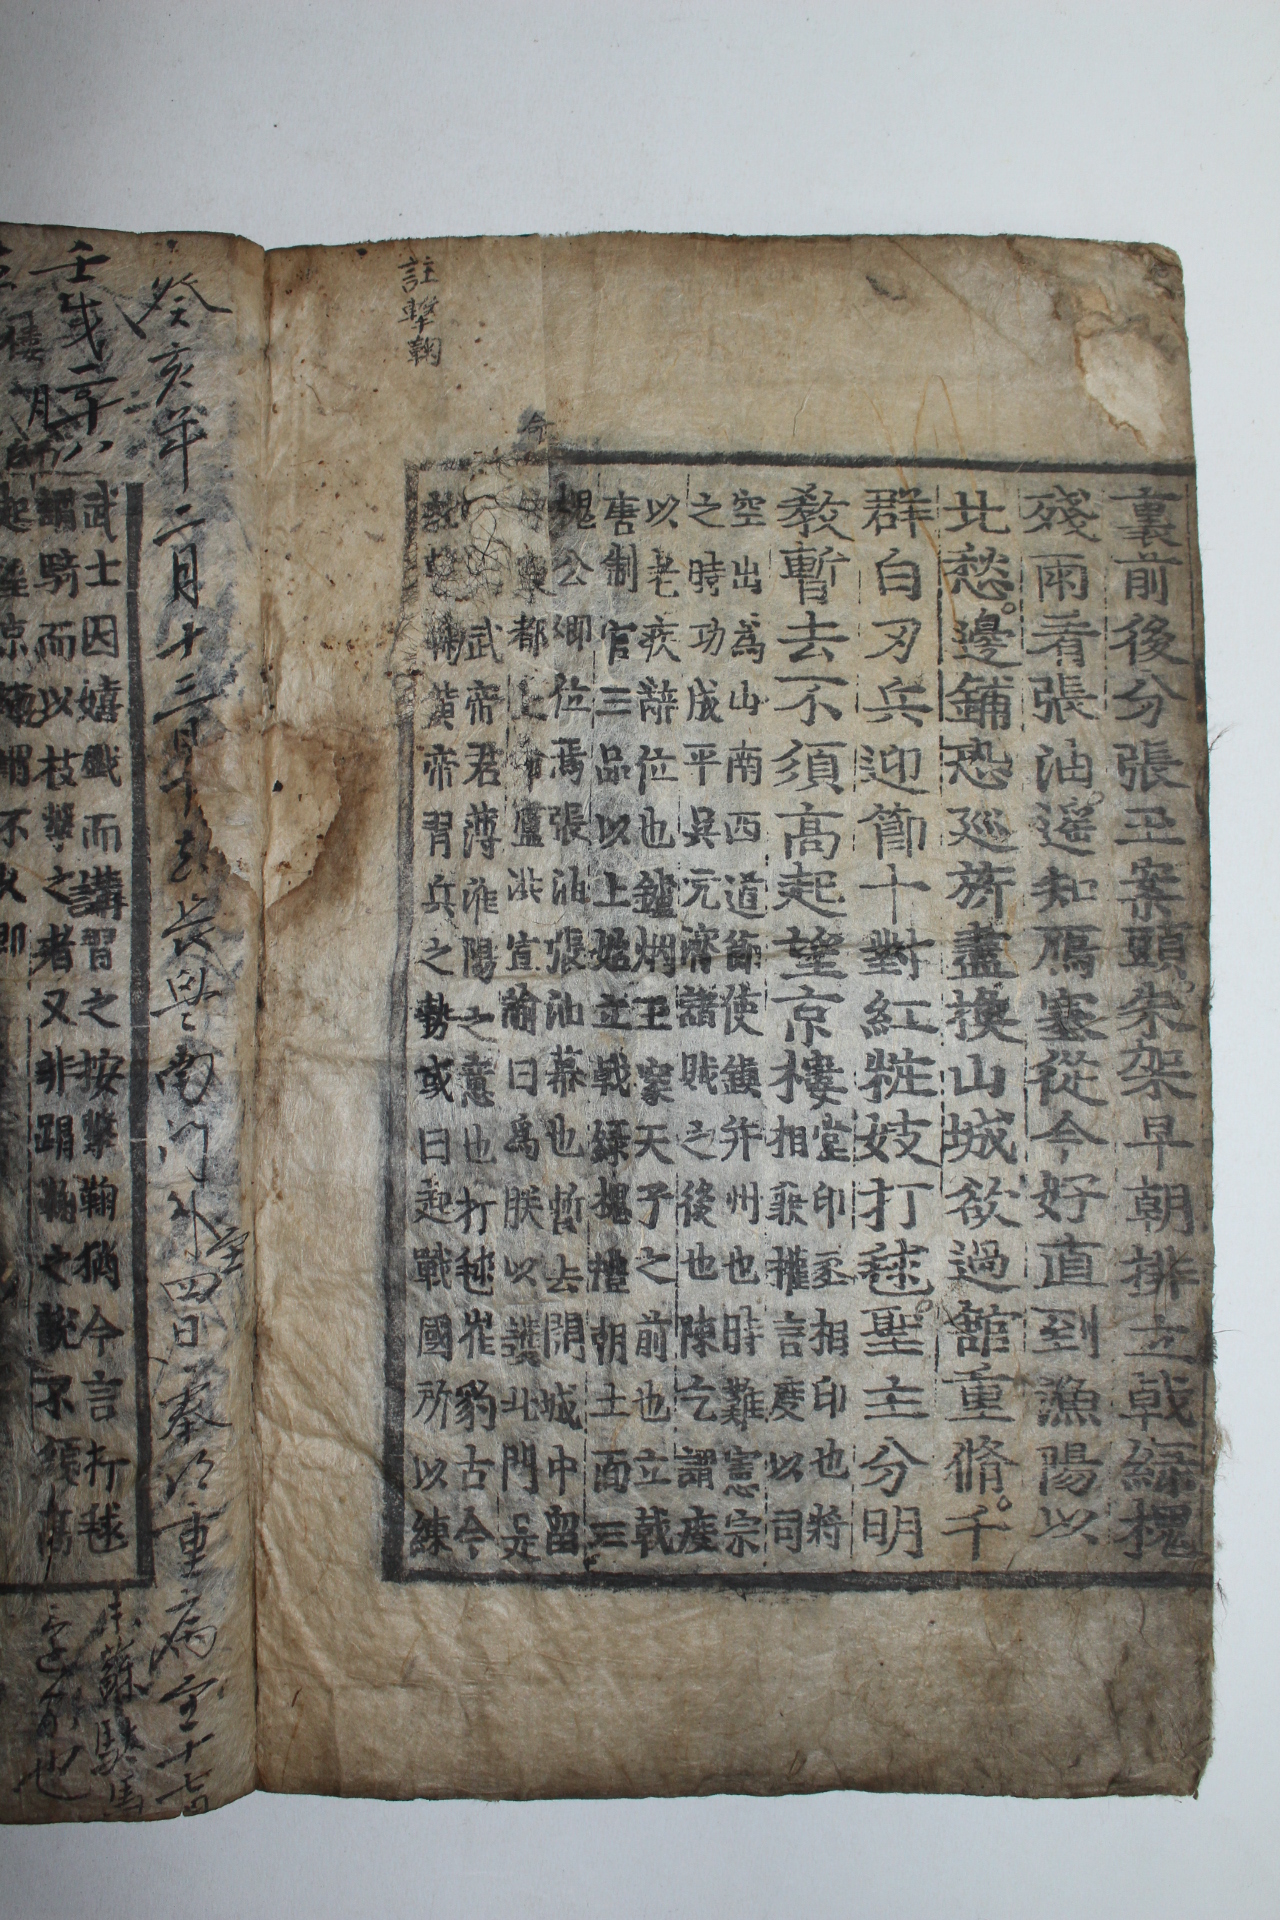 註擊鞠
裏前後分張丑案頭朱架早朝排立戟綠槐
殘雨看張油遥知鴈塞從今好直到漁陽以
北愁邊鋪恐巡旂盡換山城欲過館重脩千
群白刃兵迎節十對紅粧妓打毬聖主分明
教暫去不須高起望京樓
堂印丞相印也將
相兼權言度以司
空出爲山南西道節使鎮并州也時難憲宗
之時功成平吳元濟諸賊之後也陳乞謂度
以老疾辭位也鑪烟王家天子之前也立戟
唐制官三品以上始立戟綠槐禮朝士面三
槐公卿位焉張油張油幕也暫去開城中留
都之帥盧洪宣諭曰爲朕以護北門是
武帝君薄淮陽之意也打毬崔豹古今
鞠黃帝習兵之勢或曰起戰國所以練
癸亥年二月十三日
長
南門外
四日
重病至十七日
武士因嬉戲而講習之按擊鞠猶今言打毬
謂騎而以杖擊之者又非蹋鞠之說不須高
起望京樓謂不久即